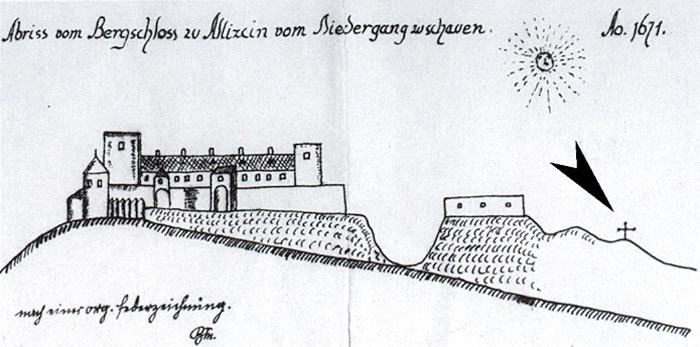 Abriss vom Bergschloss zu Allizcin vom Niedergang zuschauen. Ao. 1671.
nach einer org. Federzeichnung.